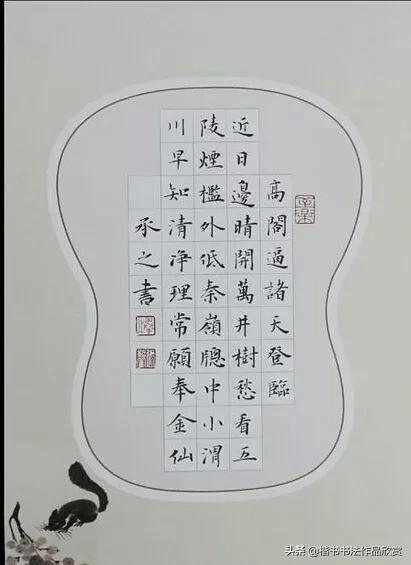 高閣逼諸天登臨
近日邊晴開萬井樹愁看五
陵煙檻外低秦嶺牕中小渭
川早知清净理常願奉金仙
承之書
头条 @楷书书法作品欣赏